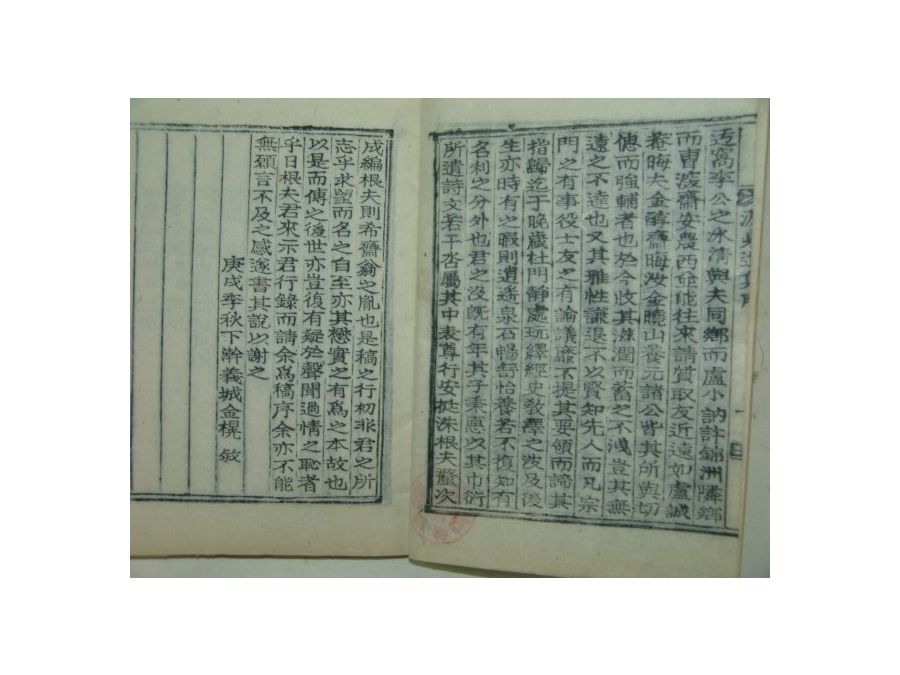 迃窩李公之永清與夫同鄉而盧小訥許錦洲隣鄉
而曺深齋安農西並能往來請質取友近遠如盧誠
菴晦夫金醇齋晦汝金曉山養元諸公皆其所與切
偲而強輔者也於今收其滋潤而蓄之不淺豈其無
遠之不達也又其雅性謙退不以賢知先人而凡宗
門之有事役士友之有論議靡不提其要領而諦其
指歸迄于晚歲杜門靜處玩繹經史敎澤之波及後
生亦時有之暇則逍遙泉石暢舒怡養若不復知有
名利之分外也君之沒旣有年其子秉憲以其巾衍
所遺詩文若干沓屬其中表尊行安挺洙根夫釐次
成編根夫則希齋翁之胤也是稿之行初非君之所
志乎求望而名之自至亦其懋實之有爲之本故也
以是而傳之後世亦豈復有疑於聲聞過情之恥者
乎日根夫君來示君行錄而請余爲稿序余亦不能
無頍言不及之感遂書其說以謝之
庚戌李秋下澣義城金榥敘